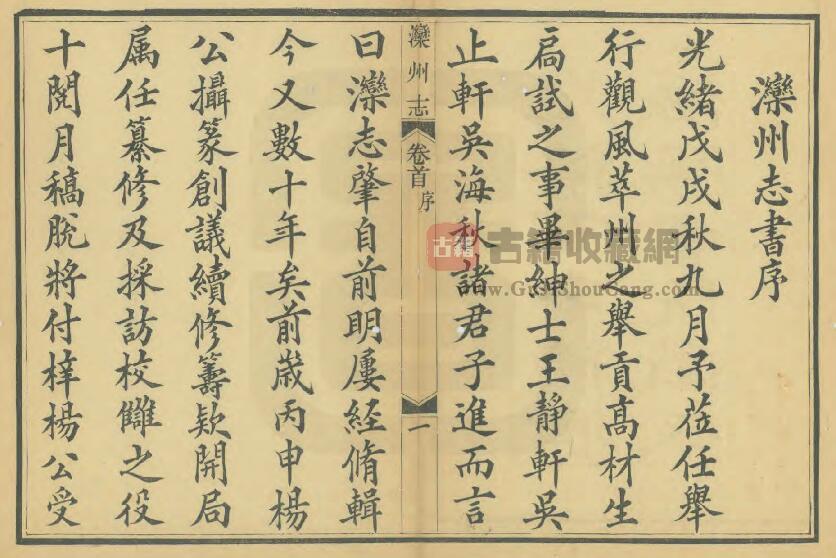 灤州志書序
光緒戊戌秋九月予莅任舉
行觀風萃州之舉貢高材生
扃試之事畢紳士王靜軒吳
止軒吳海秋諸君子進而言
灤州志
卷首
序
一
曰灤志肇自前明屢经脩輯
今又數十年矣前嵗丙申楊
公攝篆創議續修籌欵開局
属任纂修及採訪校讎之役
十閱月稿脫將付梓楊公受
古籍
古籍收藏網
www.GujiShouCang.com